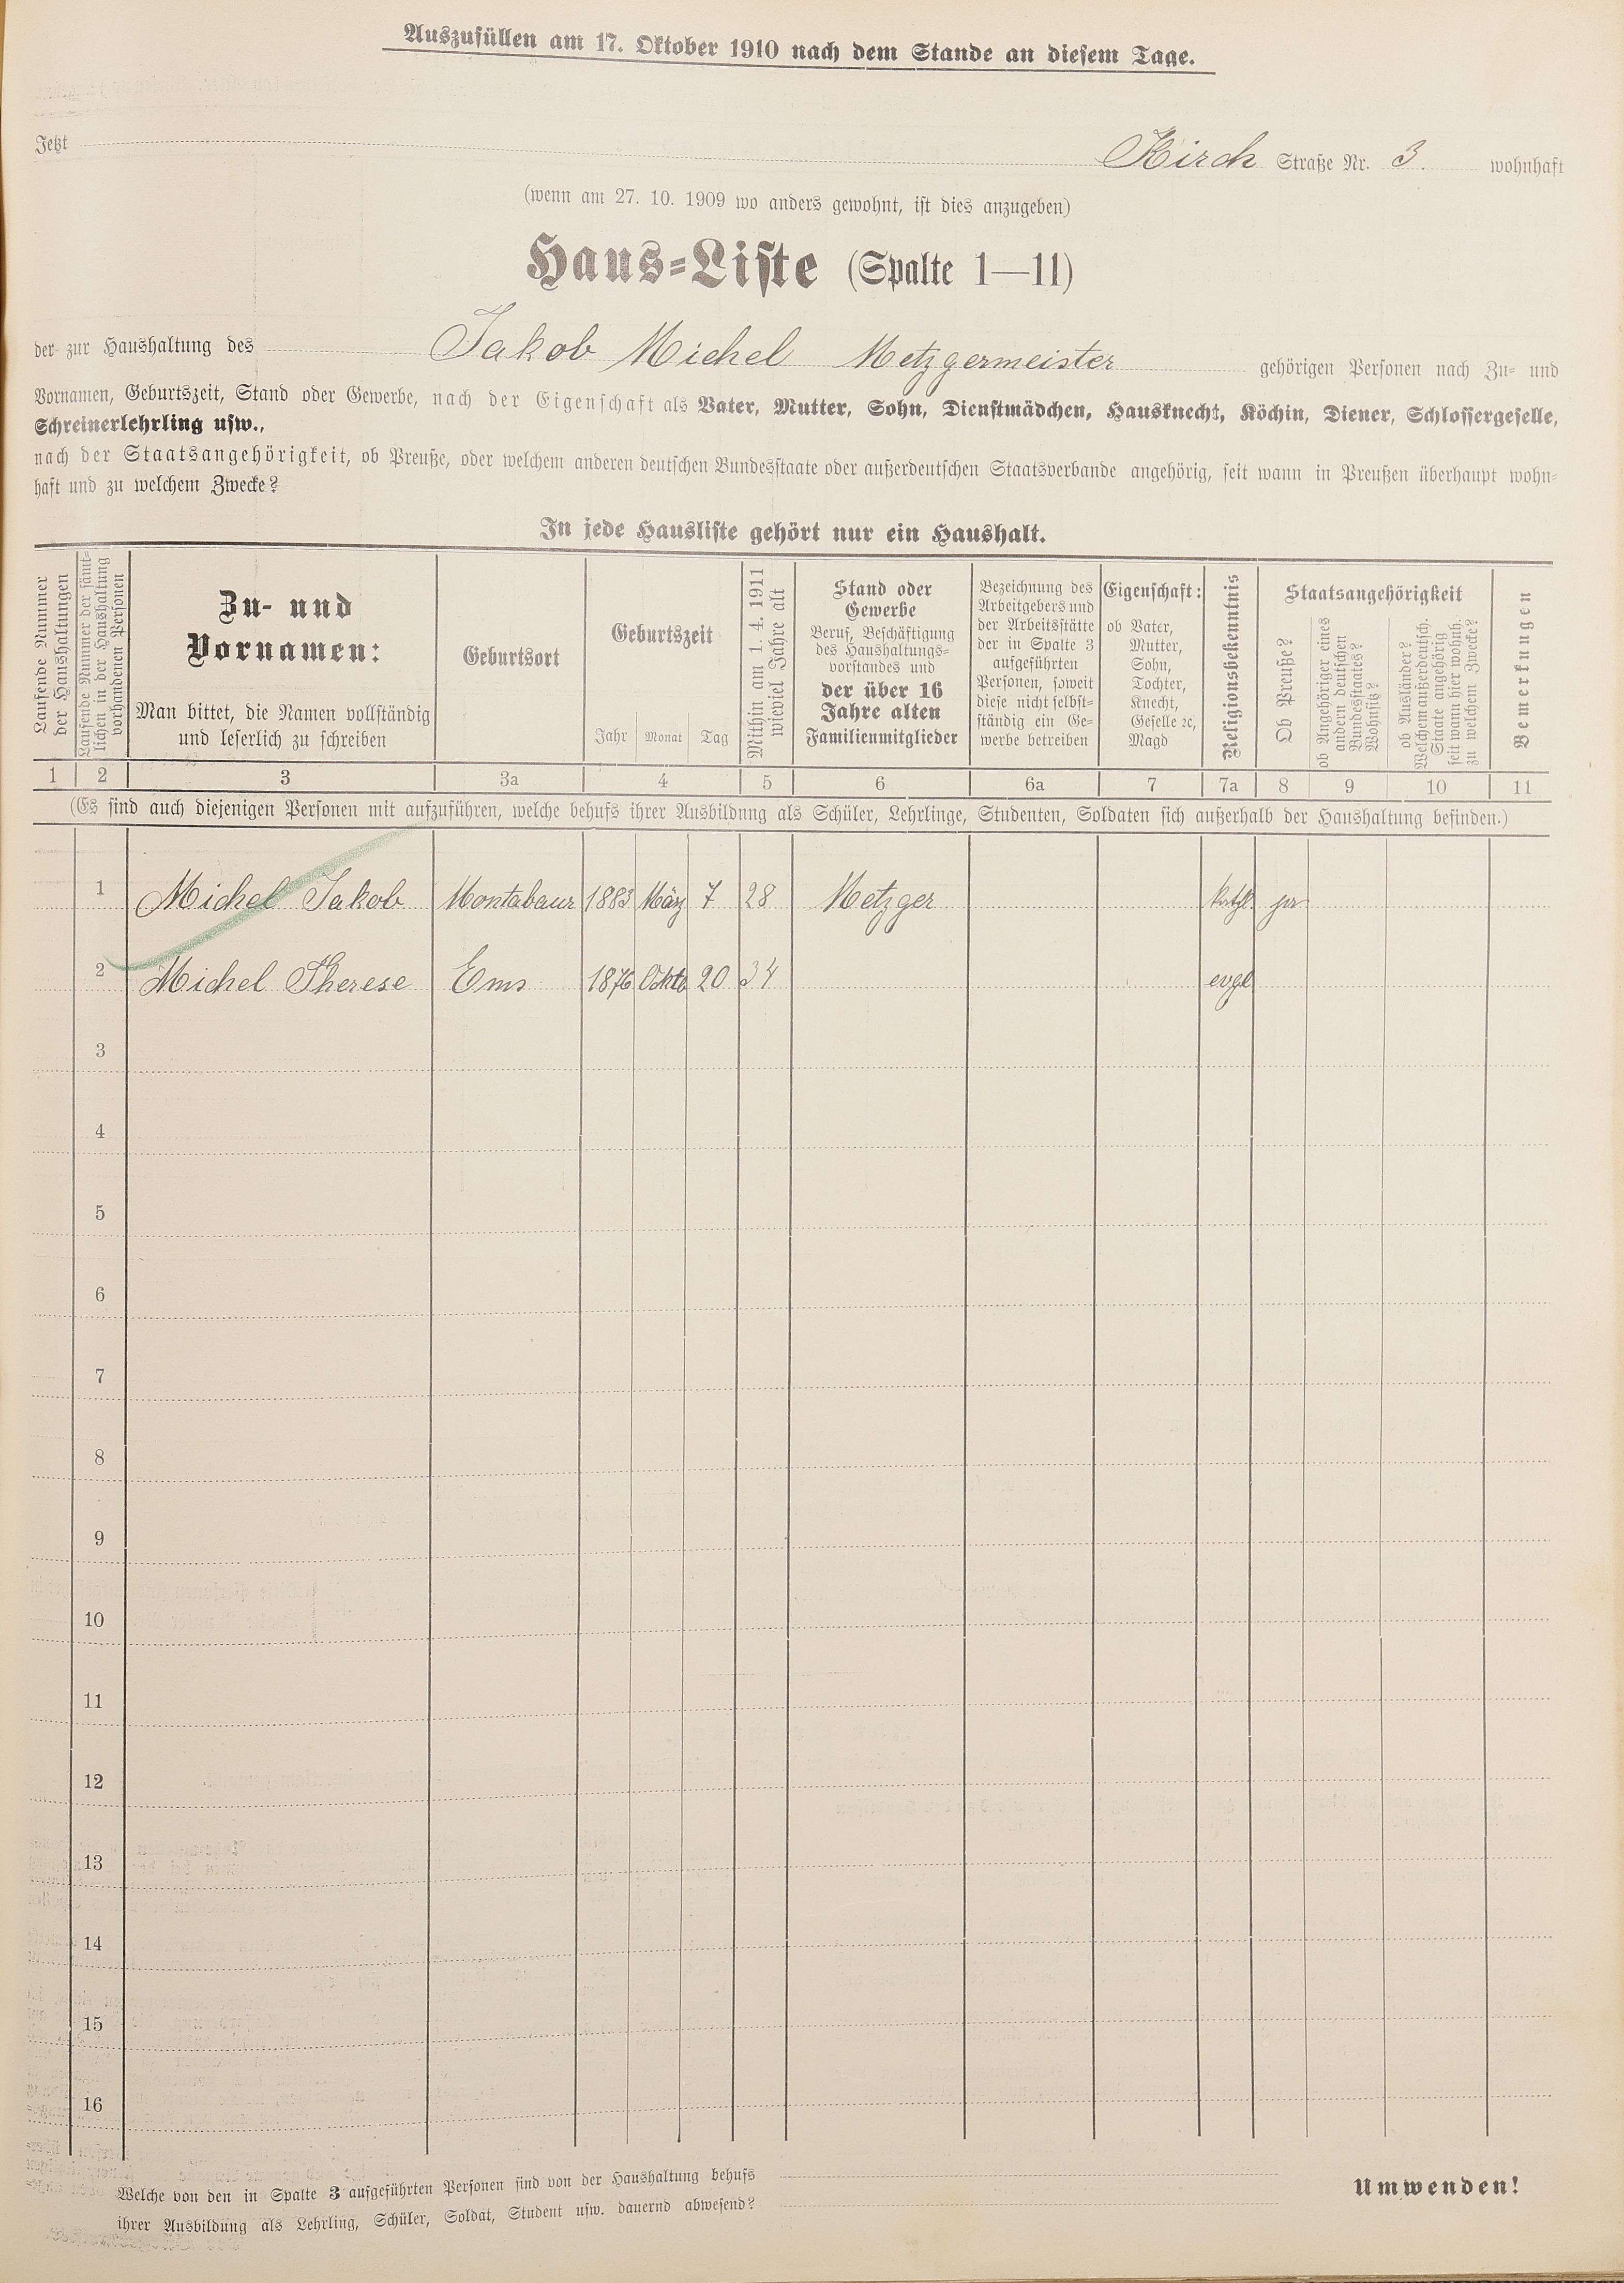 Auszufüllen am 17. Oktober 1910 nach dem Stande an diesem Tage.
Jetzt Kirch Straße Nr. 3 wohnhaft
(wenn am 27. 10. 1909 wo anders gewohnt, ist dies anzugeben)
Haus-Liste (Spalte 1—11)
der zur Haushaltung des Jakob Michel Metzgermeister gehörigen Personen nach Zu- und
Vornamen, Geburtszeit, Stand oder Gewerbe, nach der Eigenschaft als Vater, Mutter, Sohn, Dienstmädchen, Hausknecht, Köchin, Diener, Schlossergeselle,
Schreinerlehrling usw.,
nach der Staatsangehörigkeit, ob Preuße, oder welchem anderen deutschen Bundesstaate oder außerdeutschen Staatsverbande angehörig, seit wann in Preußen überhaupt wohn-
haft und zu welchem Zwecke?
In jede Hausliste gehört nur ein Haushalt.
Laufende Nummer
der Haushaltungen
Laufende Nummer der sämt-
lichen in der Haushaltung
vorhandenen Personen
Zu- und
Vornamen:
Man bittet, die Namen vollständig
und leserlich zu schreiben
Geburtsort
Geburtszeit
Jahr Monat Tag
Mithin am 1. 4. 1911
wieviel Jahre alt
Stand oder
Gewerbe
Beruf, Beschäftigung
des Haushaltungs-
vorstandes und
der über 16
Jahre alten
Familienmitglieder
Bezeichnung des
Arbeitgebers und
der Arbeitsstätte
der in Spalte 3
aufgeführten
Personen, soweit
diese nicht selbst-
ständig ein Ge-
werbe betreiben
Eigenschaft:
ob Vater,
Mutter,
Sohn,
Tochter,
Knecht,
Geselle ꝛc,
Magd
Religionsbekenntnis
Staatsangehörigkeit
Ob Preuße?
ob Angehöriger eines
andern deutschen
Bundesstaates?
Wohnsitz?
ob Ausländer?
Welchem außerdeutsch.
Staate angehörig
seit wann hier wohnh.
zu welchem Zwecke?
Bemerkungen
1 2 3 3a 4 5 6 6a 7 7a 8 9 10 11
(Es sind auch diejenigen Personen mit aufzuführen, welche behufs ihrer Ausbildung als Schüler, Lehrlinge, Studenten, Soldaten sich außerhalb der Haushaltung befinden.)
1 Michel Jakob Montabaur 1883 März 7 28 Metzger kathl. ja
2 Michel Therese Ems 1876 Oktb 20 34 evgl
3
4
5
6
7
8
9
10
11
12
13
14
15
16
Welche von den in Spalte 3 aufgeführten Personen sind von der Haushaltung behufs
ihrer Ausbildung als Lehrling, Schüler, Soldat, Student usw. dauernd abwesend?
Umwenden!